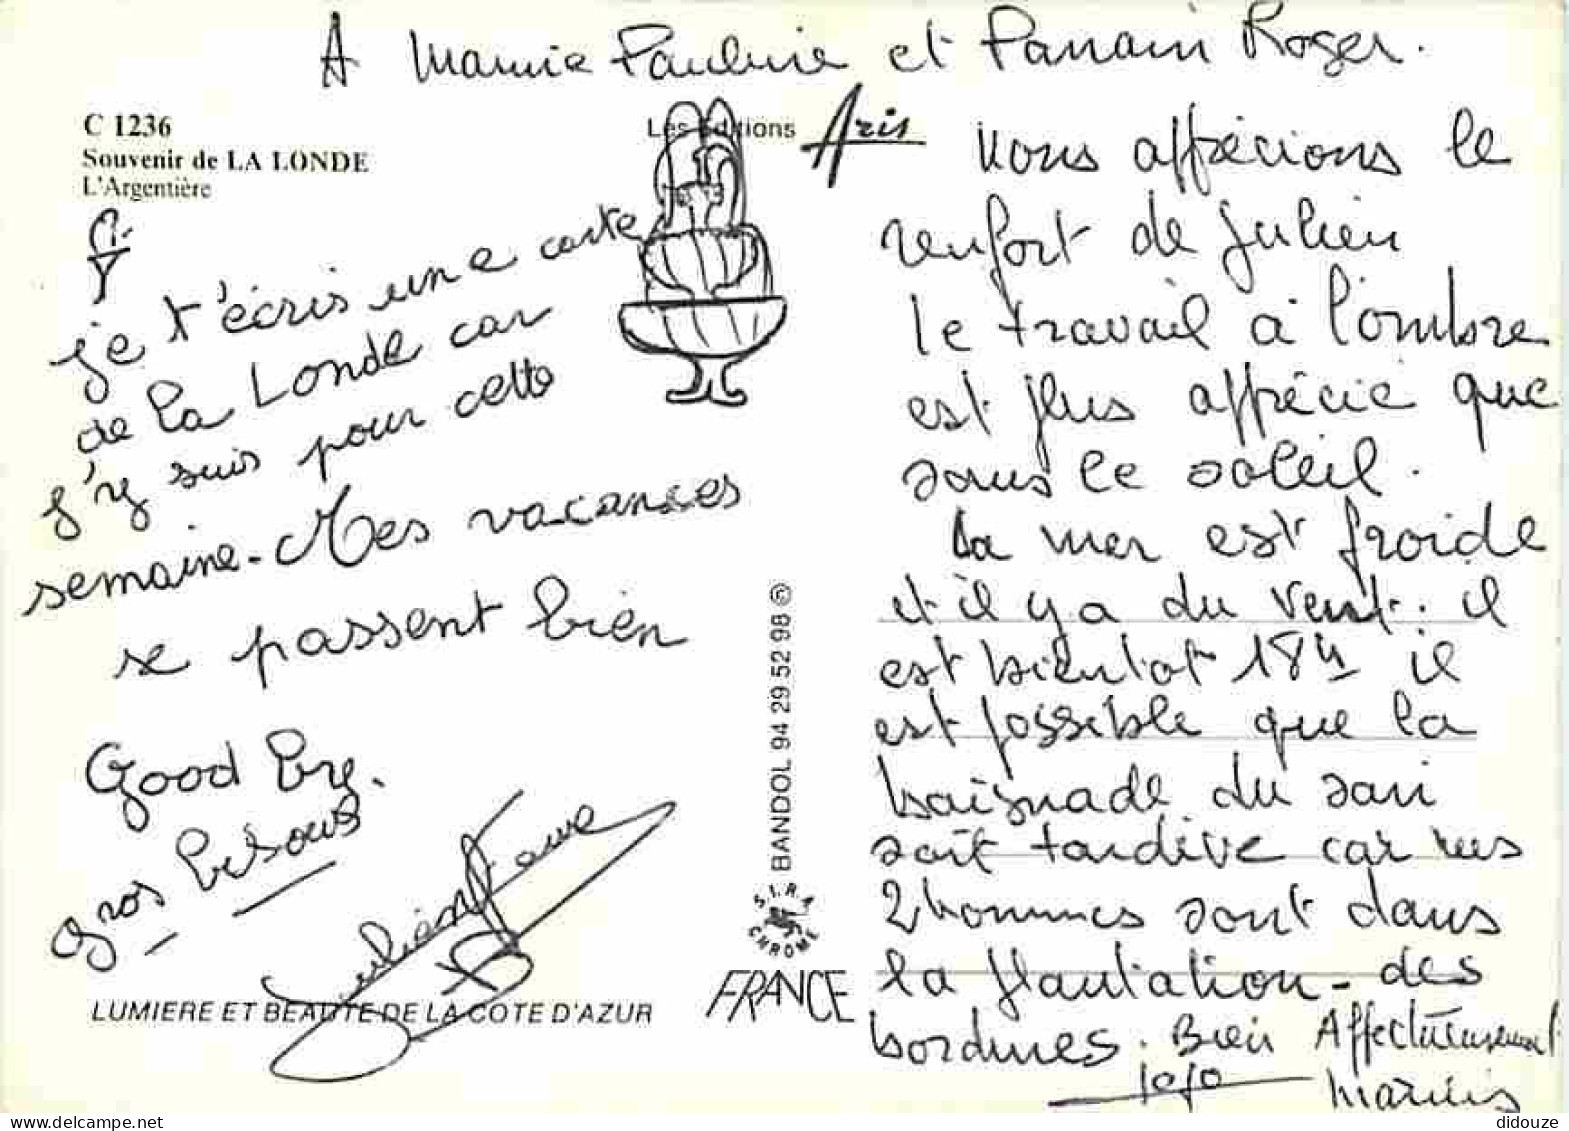 A Mamie Pauline et Parrain Roger.
C 1236
Souvenir de LA LONDE
L'Argentière
Les Editions Aris
je t'écris une carte
de la Londe car
j'y suis pour cette
semaine. Mes vacances
se passent bien
Good bye.
gros bisous
Julien
LUMIERE ET BEAUTE DE LA COTE D'AZUR
BANDOL 94 29 52 98 ©
S.I.R.A
CHROME
FRANCE
Nous apprécions le
renfort de Julien
le travail à l'ombre
est plus apprécié que
sous le soleil.
La mer est froide
et il y a du vent. il
est bientot 18h il
est possible que la
baignade du soir
soit tardive car nos
2 hommes sont dans
la plantation des
bordures. Bien Affectueusement
jojo